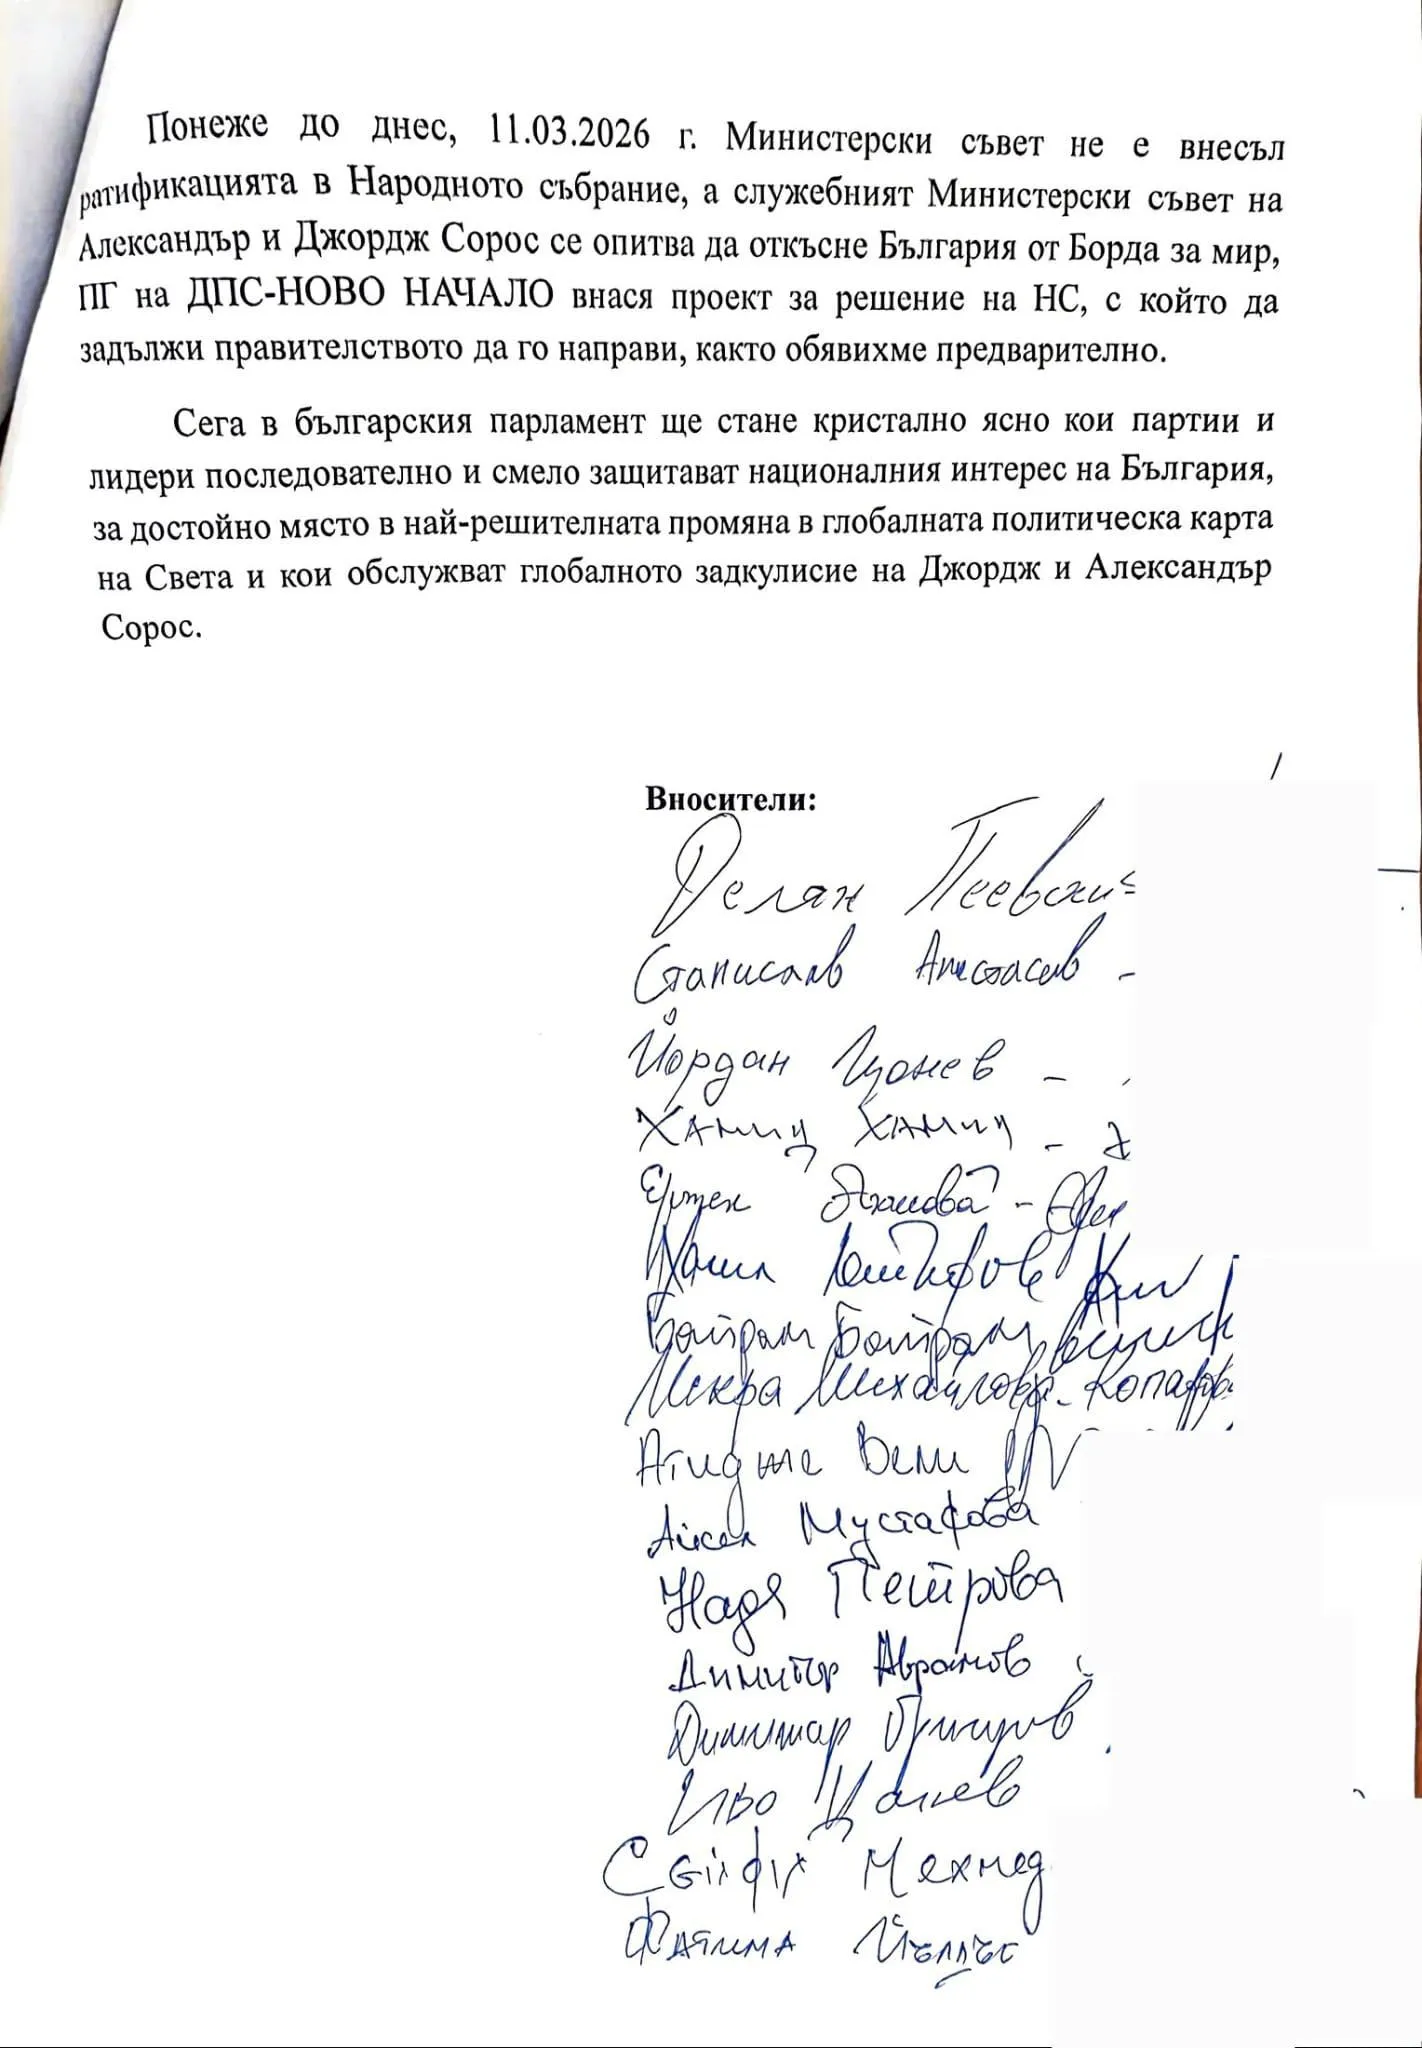 Понеже до днес, 11.03.2026 г. Министерски съвет не е внесъл
ратификацията в Народното събрание, а служебният Министерски съвет на
Александър и Джордж Сорос се опитва да откъсне България от Борда за мир,
ПГ на ДПС-НОВО НАЧАЛО внася проект за решение на НС, с който да
задължи правителството да го направи, както обявихме предварително.
Сега в българския парламент ще стане кристално ясно кои партии и
лидери последователно и смело защитават националния интерес на България,
за достойно място в най-решителната промяна в глобалната политическа карта
на Света и кои обслужват глобалното задкулисие на Джордж и Александър
Сорос.
Вносители:
Делян Пеевски -
Станислав Анастасов -
Йордан Цонев -
Хамид Хамид -
Ертен
Халил Летифов
Байрам Байрам
Искра Михайлова-Копарова
Атидже Вели
Айсел Мустафова
Надя Петрова
Димитър Аврамов
Димитър
Иво Цанев
Сейфи Мехмед
Фатима Йълдъс